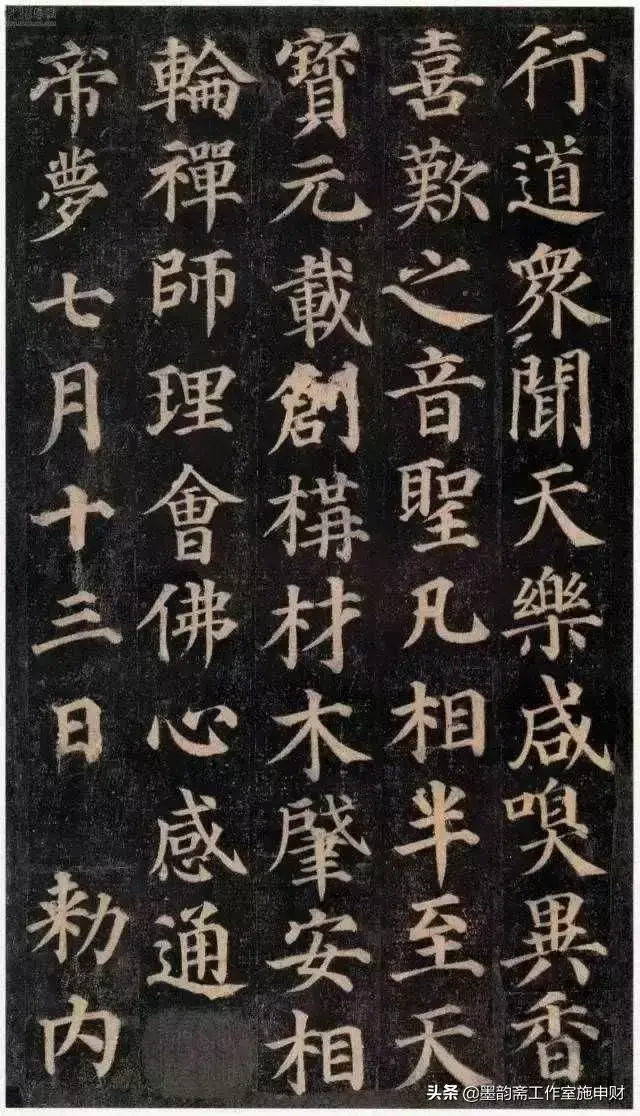 行道眾聞天樂咸嗅異香
喜歎之音聖凡相半至天
寶元載創構材木肇安相
輪禪師理會佛心感通
帝夢七月十三日 勅内
头条 @墨韵斋工作室施申财